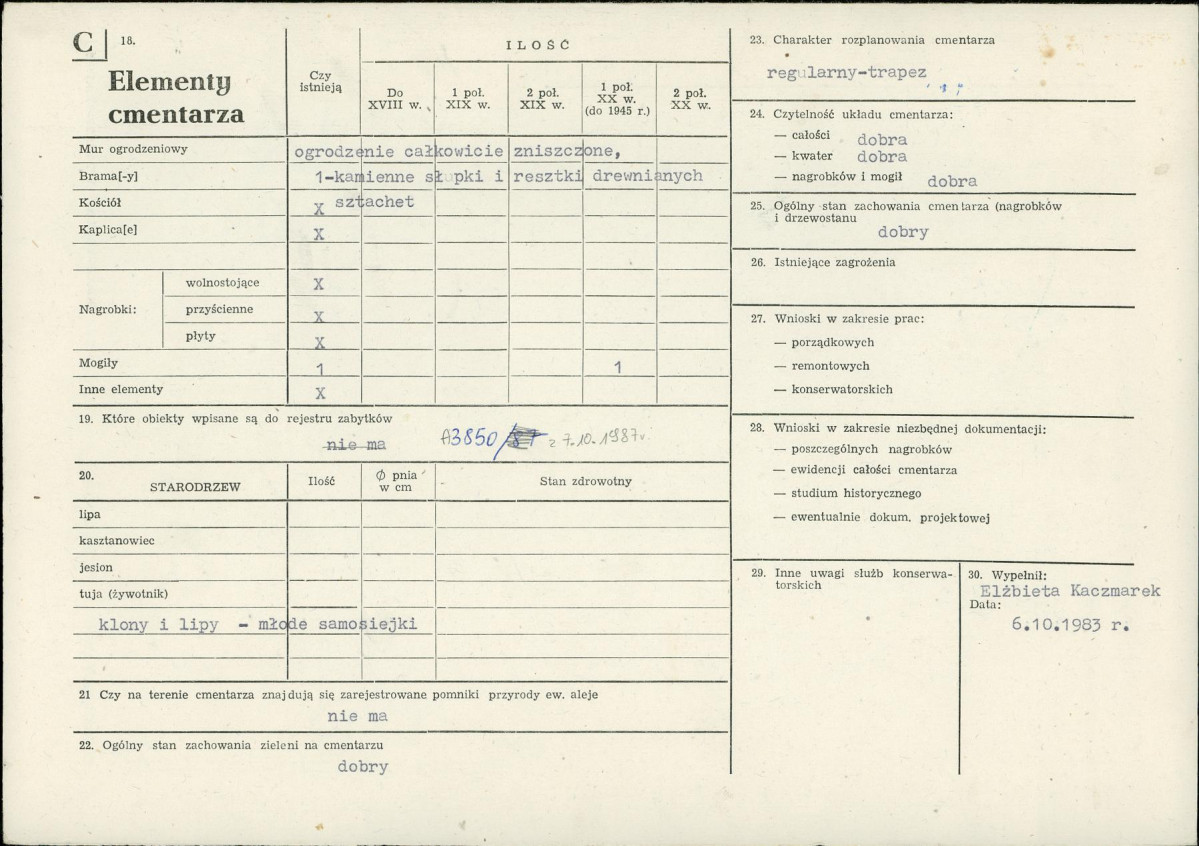 C 18.
Elementy
cmentarza
Czy
istnieją
ILOŚĆ
Do
XVIII w.
1 poł.
XIX w.
2 poł.
XIX w.
1 poł.
XX w.
(do 1945 r.)
2 poł.
XX w.
Mur ogrodzeniowy ogrodzenie całkowicie zniszczone,
Brama[-y] 1-kamienne słupki i resztki drewnianych
Kościół X sztachet
Kaplica[e] X
Nagrobki:
wolnostojące X
przyścienne X
płyty X
Mogiły 1 1
Inne elementy X
19. Które obiekty wpisane są do rejestru zabytków
nie ma A3850/87 z 7.10.1987r.
20.
STARODRZEW
Ilość
Ø pnia
w cm
Stan zdrowotny
lipa
kasztanowiec
jesion
tuja (żywotnik)
klony i lipy - młode samosiejki
21 Czy na terenie cmentarza znajdują się zarejestrowane pomniki przyrody ew. aleje
nie ma
22. Ogólny stan zachowania zieleni na cmentarzu
dobry
23. Charakter rozplanowania cmentarza
regularny-trapez
24. Czytelność układu cmentarza:
— całości dobra
— kwater dobra
— nagrobków i mogił dobra
25. Ogólny stan zachowania cmentarza (nagrobków
i drzewostanu
dobry
26. Istniejące zagrożenia
27. Wnioski w zakresie prac:
— porządkowych
— remontowych
— konserwatorskich
28. Wnioski w zakresie niezbędnej dokumentacji:
— poszczególnych nagrobków
— ewidencji całości cmentarza
— studium historycznego
— ewentualnie dokum. projektowej
29. Inne uwagi służb konserwa-
torskich
30. Wypełnił:
Elżbieta Kaczmarek
Data:
6.10.1983 r.